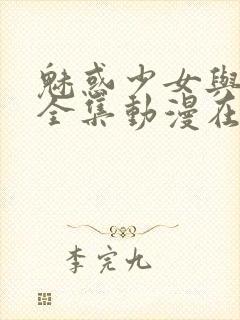 魅惑少女與
全集動漫在
李完九